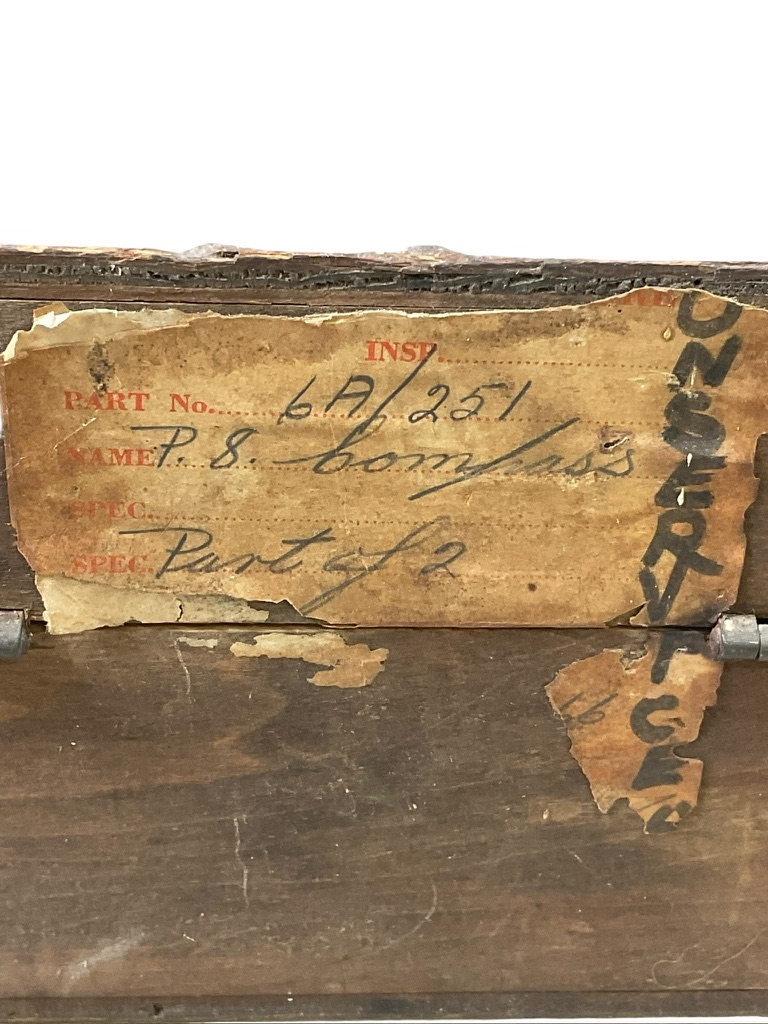 INSP.
PART No. 6A/251
NAME P. 8. Compass
SPEC.
SPEC. Part of 2
UNSERVICE
16